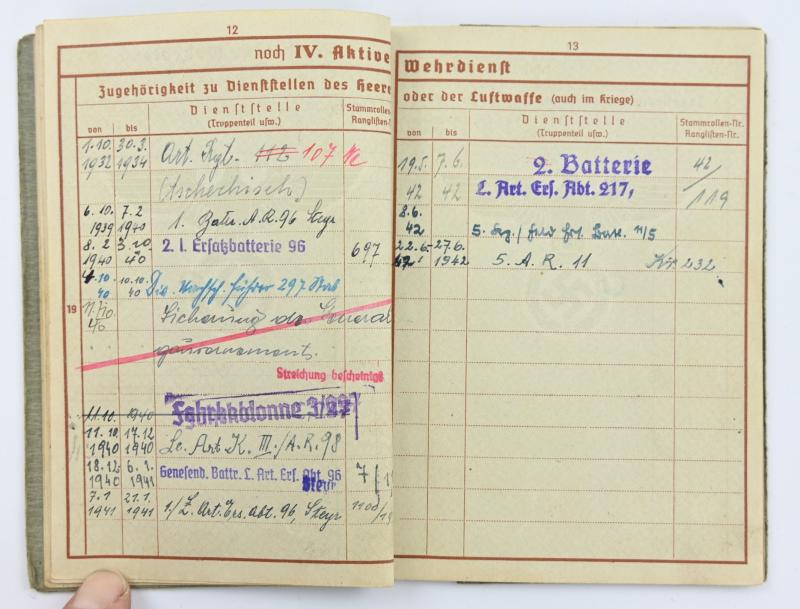 12
noch IV. Aktive
Zugehörigkeit zu Dienststellen des Heere
von bis Dienststelle (Truppenteil usw.) Stammrollen- Ranglisten-
1.10. 1932 30.3. 1934 Art. Rgt. 112 107
(tschechisch)
6.10. 1939 7.2. 1940 1. Battr. A.R. 96 Steyr
8.2. 1940 3.10. 40 2. l. Ersatzbatterie 96 697
4.10. 40 10.10. 40 Div. Nachsch. führer 297 Stab
19 11.10. 40 Sicherung des General
gouvernements.
Streichung bescheinigt
11.10. 1940 Fahrkolonne 3/297
11.10. 1940 17.12. 1940 Le. Art. K. III./A.R. 98
18.12. 1940 6.1. 1941 Genesend. Battr. l. Art. Ers. Abt. 96 7/
Steyr
7.1. 1941 21.1. 1941 1./l. Art. Ers. Abt. 96, Steyr 1100/
13
Wehrdienst
oder der Luftwaffe (auch im Kriege)
von bis Dienststelle (Truppenteil usw.) Stammrollen-Nr. Ranglisten-Nr.
19.5. 42 7.6. 42 2. Batterie 42/119
l. Art. Ers. Abt. 217,
8.6. 42 5.
22.6. 42 27.6. 1942 5. A.R. 11 232